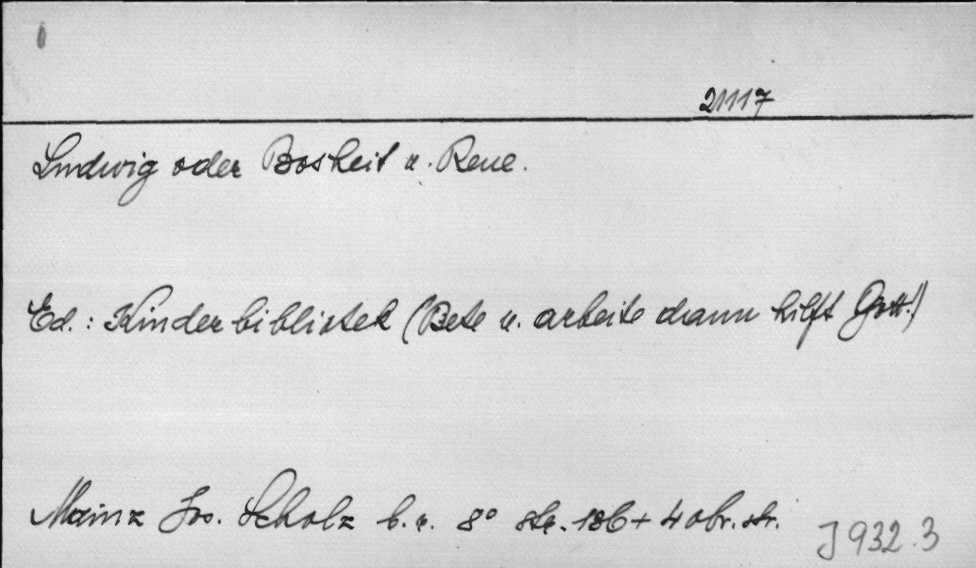 21117
Ludwig oder Bosheit u. Reue.
Ed.: Kinderbibliotek (Bete u. arbeite dann hilft Gott!)
Mainz Jos. Scholz b.r. 8° str. 186 + 4 obr. str.
J 932.3